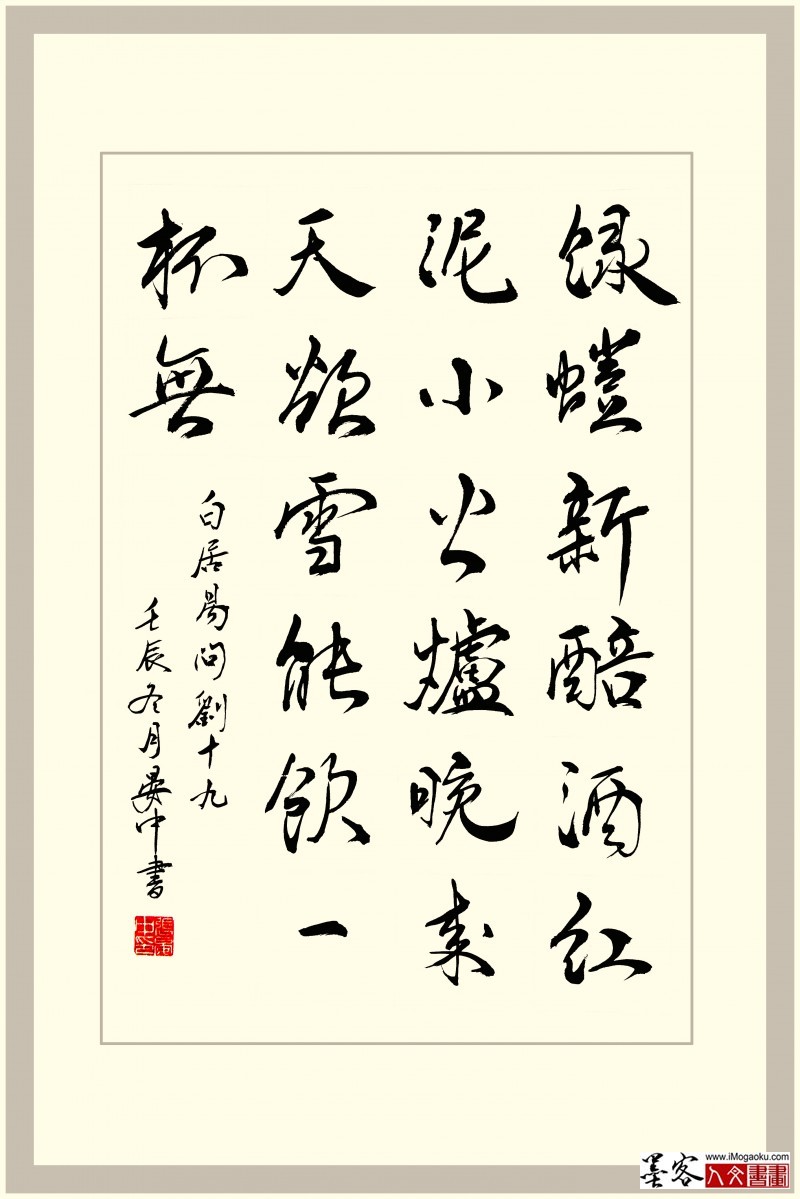 绿螘新醅酒红
泥小火爐晚来
天欲雪能飲一
杯無
白居易問劉十九
壬辰冬月晏中書
墨客
www.iMogaoku.com
人文書畫